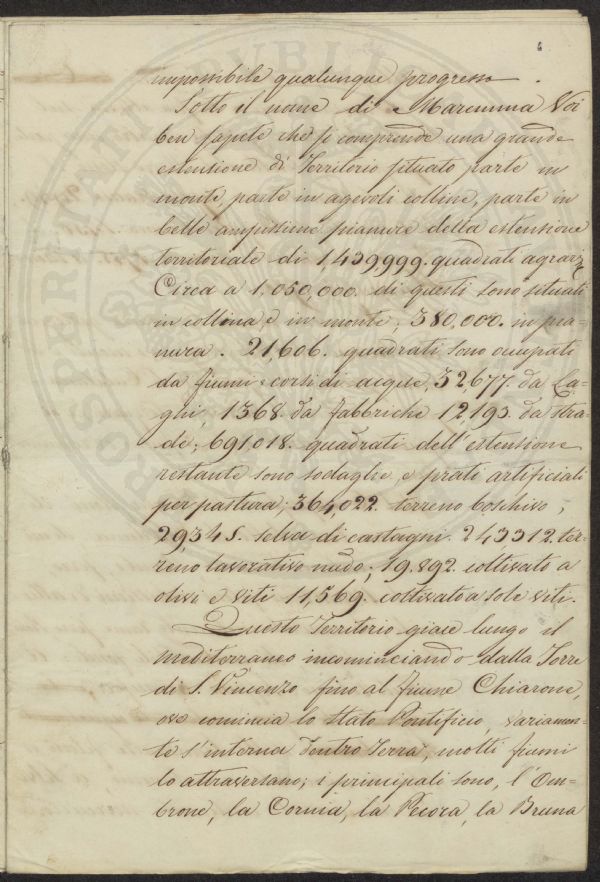 6
impossibile qualunque progresso.
Sotto il nome di Maremma Voi
ben sapete che si comprende una grande
estensione di Territorio situato parte in
monte, parte in agevoli colline, parte in
belle ampissime pianure della estensione
territoriale di 1,439,999. quadrati agrarj
Circa a 1,050,000. di questi sono situati
in collina e in monte; 380,000. in pia=
nura. 21,606. quadrati sono occupati
da fiumi e corsi di acque, 32677. da La=
ghi, 1368. da fabbriche 12,193. da stra=
de; 691,018. quadrati dell'estensione
restante sono sodaglie e prati artificiali
per pastura; 364,022. terreno boschivo;
29,345. selva di castagni. 243312. ter=
reno lavorativo nudo; 19.892. coltivato a
olivi e viti 11,569. coltivato a sole viti.
Questo Territorio giace lungo il
mediterraneo incominciando dalla Torre
di S. Vincenzo fino al fiume Chiarone,
ove comincia lo Stato Pontificio, variamen=
te s'interna dentro Terra, molti fiumi
lo attraversano; i principali sono, l'Om=
brone, la Cornia, la Pecora, la Bruna